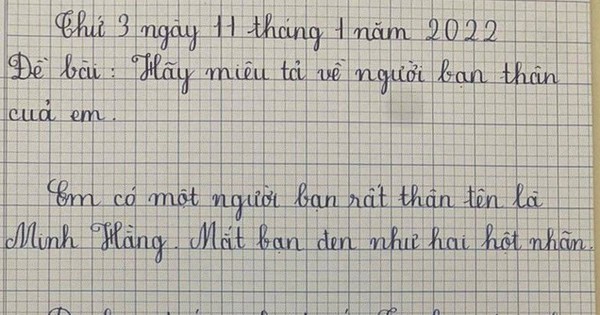 Thứ 3 ngày 11 tháng 1 năm 2022
Đề bài : Hãy miêu tả về người bạn thân
cuả em .
Em có một người bạn rất thân tên là
Minh Hằng. Mắt bạn đen như hai hột nhãn.